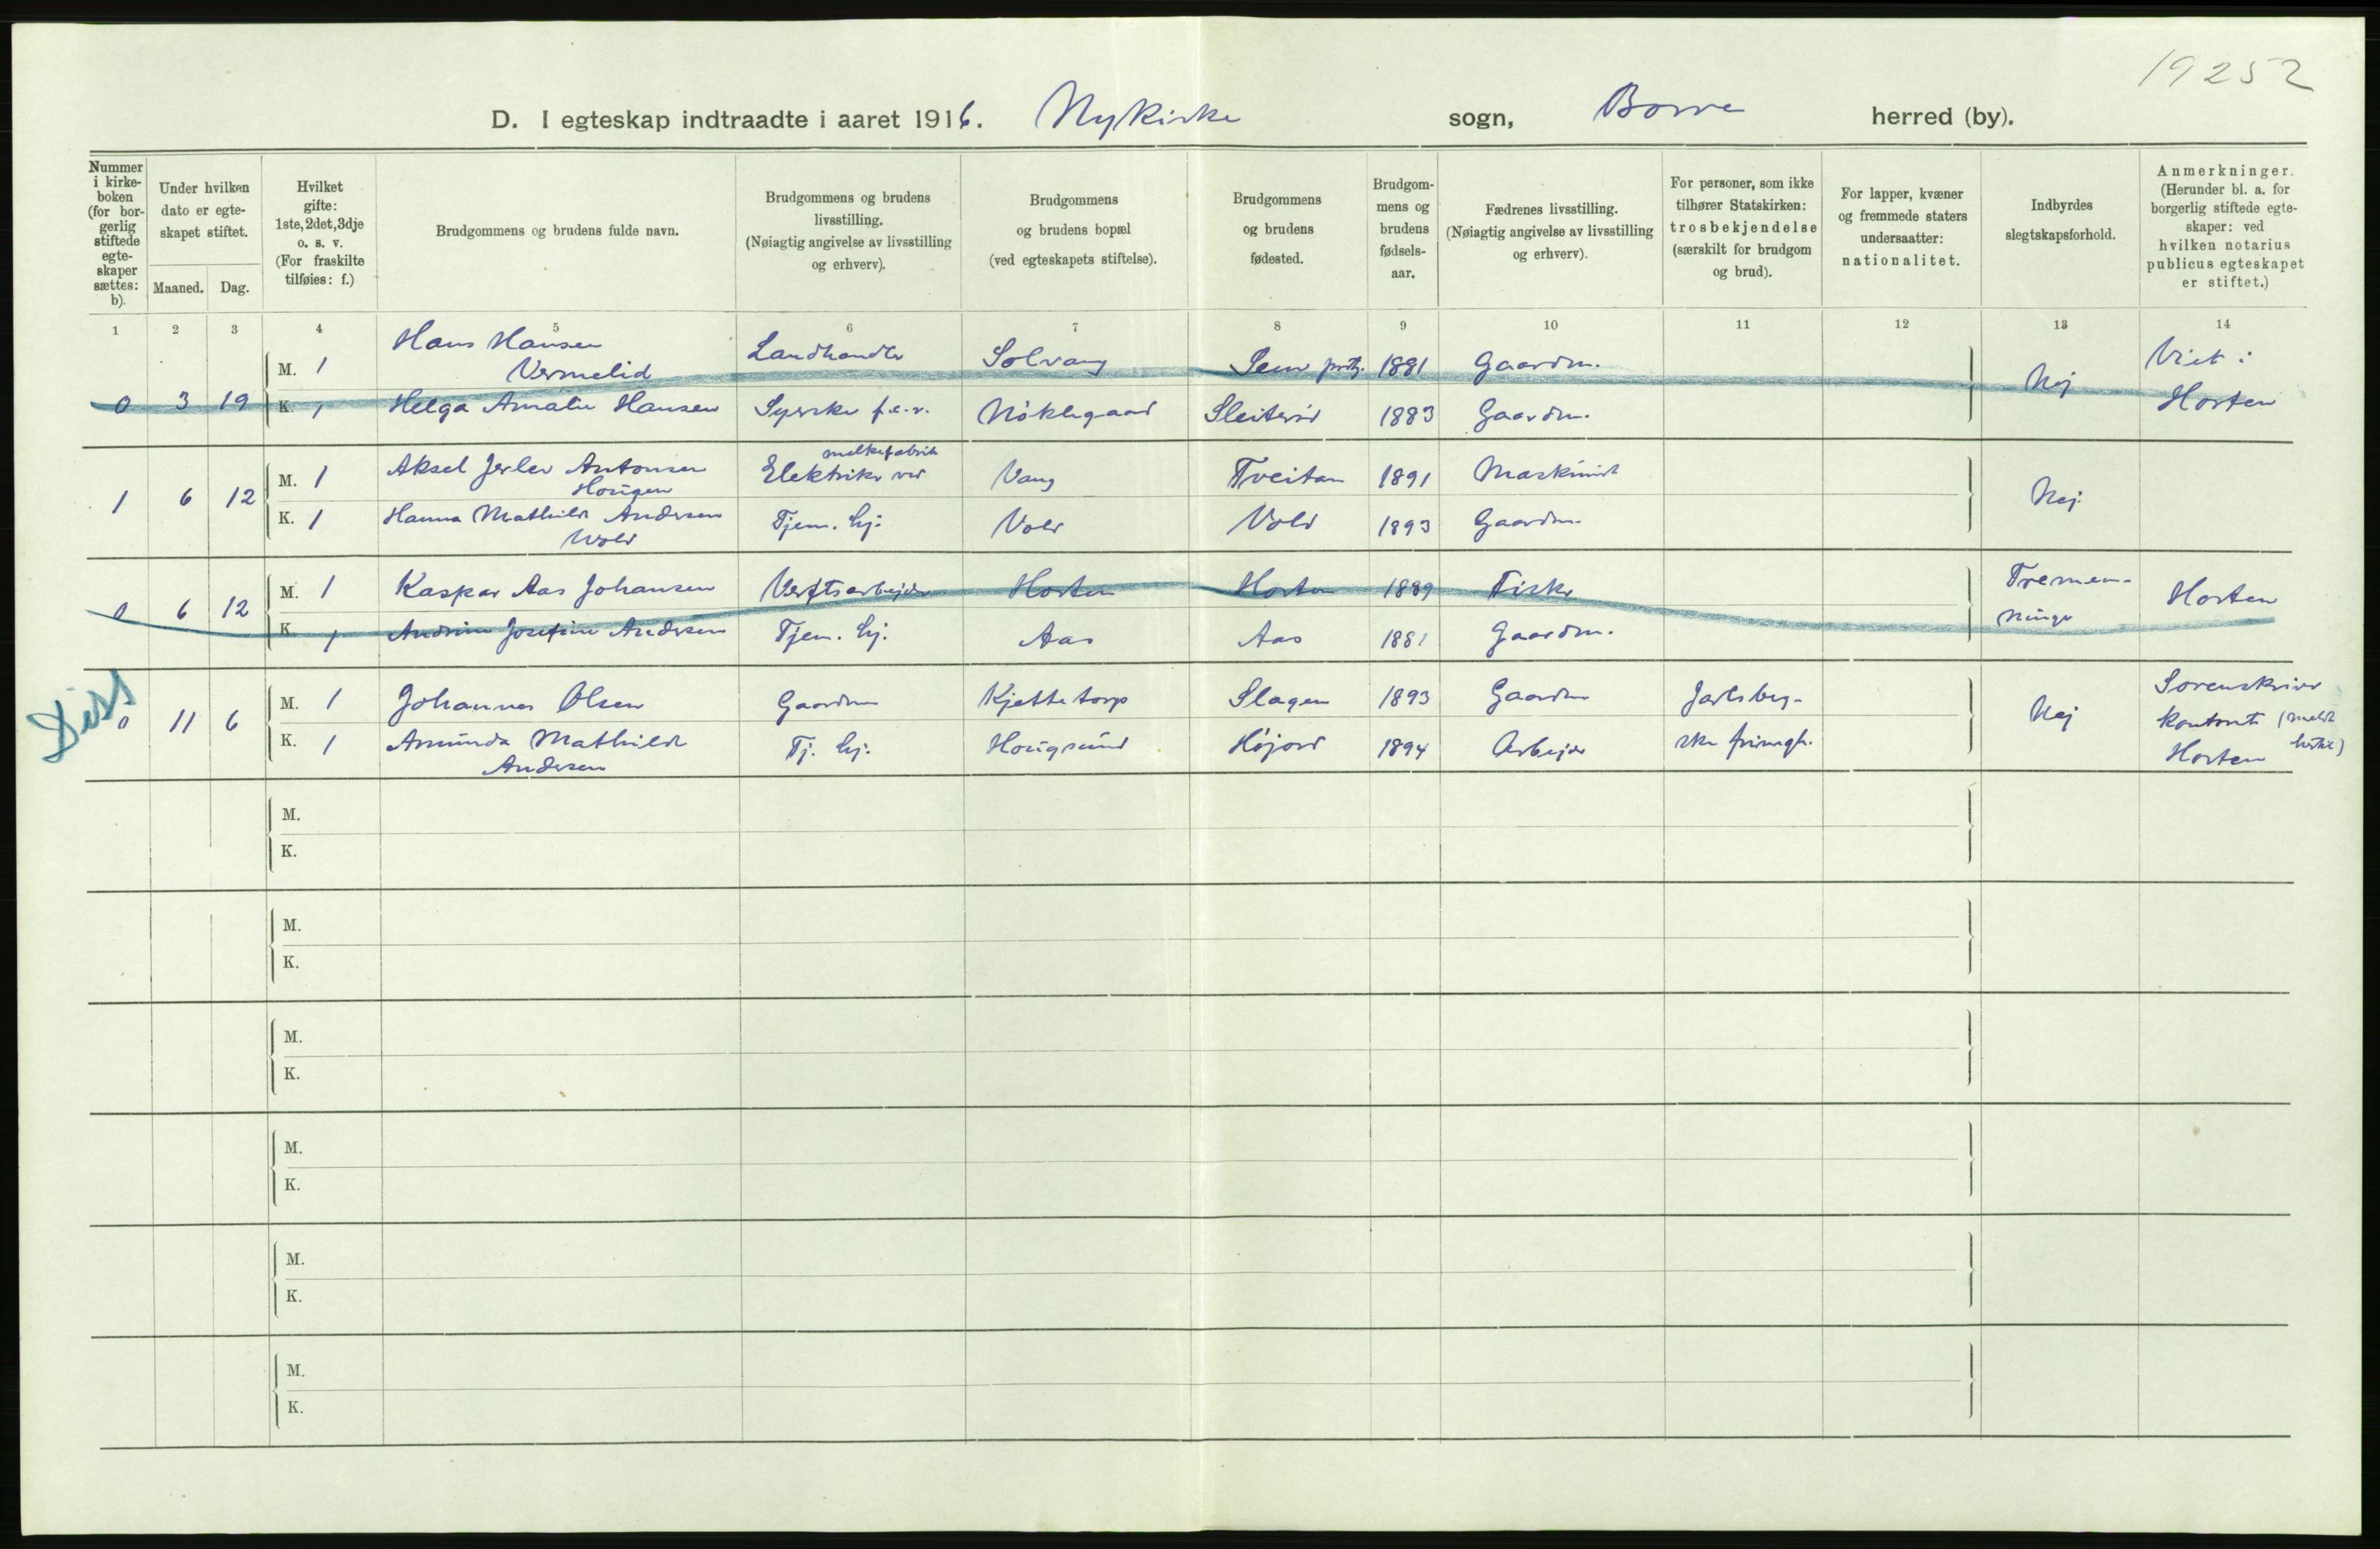 19252
D. I egteskap indtraadte i aaret 1916. Nykirke sogn, Borre herred (by).
Nummer i kirke- boken (for bor- gerlig stiftede egte- skaper sættes: b).
Under hvilken dato er egte- skapet stiftet.
Maaned. Dag.
Hvilket gifte: 1ste, 2det, 3dje o. s. v. (For fraskilte tilføies: f.)
Brudgommens og brudens fulde navn.
Brudgommens og brudens livsstilling. (Nøiagtig angivelse av livsstilling og erhverv).
Brudgommens og brudens bopæl (ved egteskapets stiftelse).
Brudgommens og brudens fødested.
Brudgom- mens og brudens fødsels- aar.
Fædrenes livsstilling. (Nøiagtig angivelse av livsstilling og erhverv).
For personer, som ikke tilhører Statskirken: trosbekjendelse (særskilt for brudgom og brud).
For lapper, kvæner og fremmede staters undersaatter: nationalitet.
Indbyrdes slegtskapsforhold.
Anmerkninger. (Herunder bl. a. for borgerlig stiftede egte- skaper: ved hvilken notarius publicus egteskapet er stiftet.)
1 2 3 4 5 6 7 8 9 10 11 12 13 14
M. 1 Hans Hansen Vermelid Landhandler Solvang Sem prstg. 1881 Gaardm. Viet i
0 3 19 K. 1 Helga Amalie Hansen Syerske f.e.r. Nöklegaard Sleiterød 1883 Gaardm. Nej Horten
M. 1 Aksel Jerlev Antonsen Hougen Elektriker ved melkefabrik Vang Tveitan 1891 Maskinist
1 6 12 K. 1 Hanna Mathilde Andersen Wold Tjen. hj. Vold Vold 1893 Gaardm. Nej
M. 1 Kaspar Aas Johansen Verftsarbejder Horten Horten 1889 Fisker Tremen-
0 6 12 K. 1 Andrine Josefine Andersen Tjen. hj. Aas Aas 1881 Gaardm. ninger Horten
Diss
M. 1 Johannes Olsen Gaardm Kjettetorp Slagen 1893 Gaardm Jarlsberg- Sorenskriver
0 11 6 K. 1 Amunda Mathilde Andersen Tj. hj. Hougsund Höjord 1894 Arbejder ske frimegh. Nej kontoret (meldt hertil) Horten
M.
K.
M.
K.
M.
K.
M.
K.
M.
K.
M.
K.